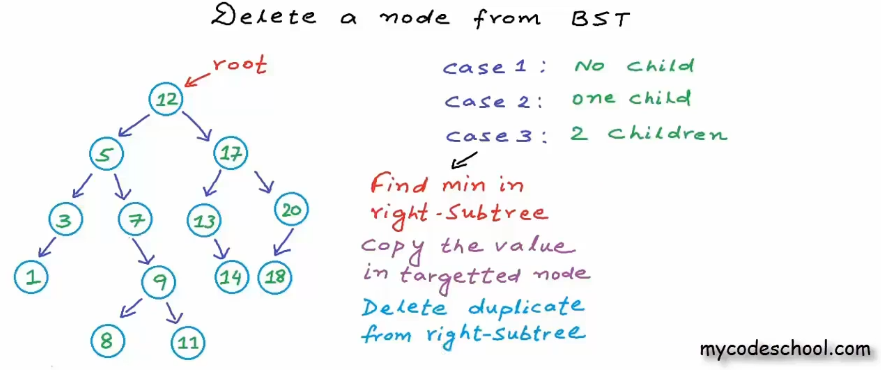 Delete a node from BST
root
12
5
17
3
7
13
20
1
9
14
18
8
11
case 1: No child
case 2: one child
case 3: 2 children
Find min in
right-Subtree
copy the value
in targetted node
Delete duplicate
from right-Subtree
mycodeschool.com